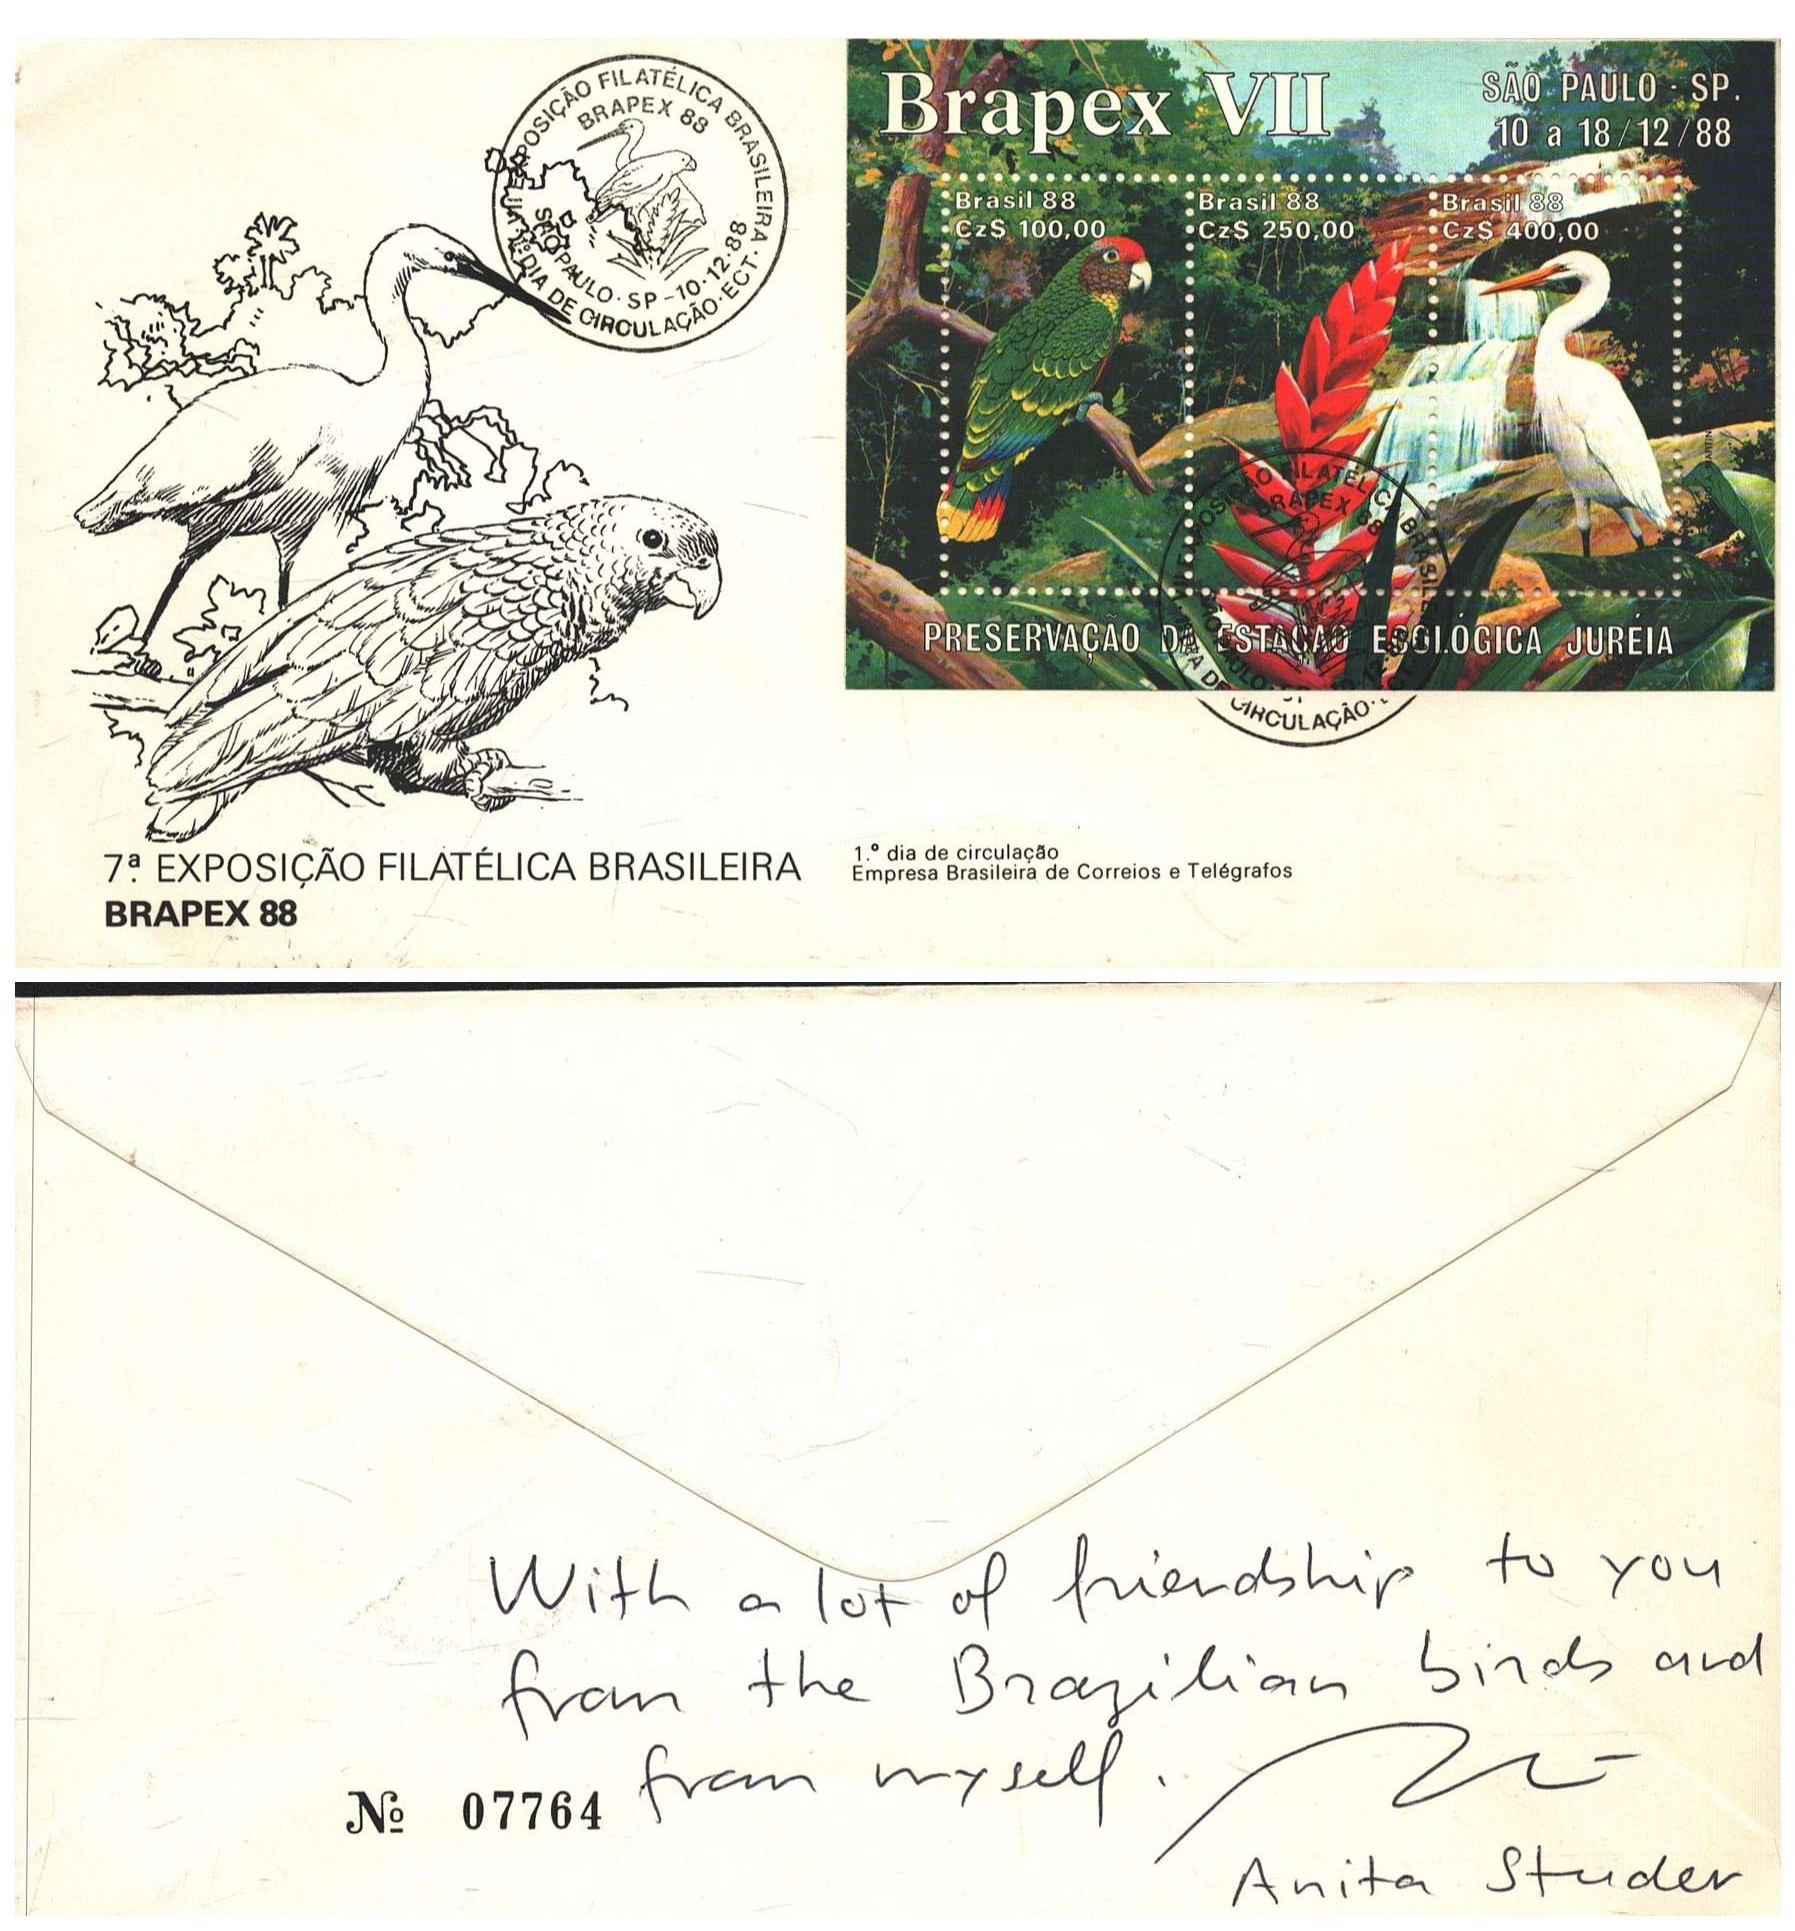 EXPOSIÇÃO FILATÉLICA BRASILEIRA
BRAPEX 88
SÃO PAULO · SP - 10·12·88
1º DIA DE CIRCULAÇÃO · ECT ·
Brapex VII
SÃO PAULO - SP.
10 a 18/12/88
Brasil 88
Cz$ 100,00
Brasil 88
Cz$ 250,00
Brasil 88
Cz$ 400,00
FILATÉLICA BRASIL
BRAPEX 88
DE CIRCULAÇÃO ·
PRESERVAÇÃO DA ESTAÇÃO ECOLÓGICA JURÉIA
7ª EXPOSIÇÃO FILATÉLICA BRASILEIRA
BRAPEX 88
1.º dia de circulação
Empresa Brasileira de Correios e Telégrafos
With a lot of friendship to you
from the Brazilian birds and
from myself.
Nº 07764
Anita Studer